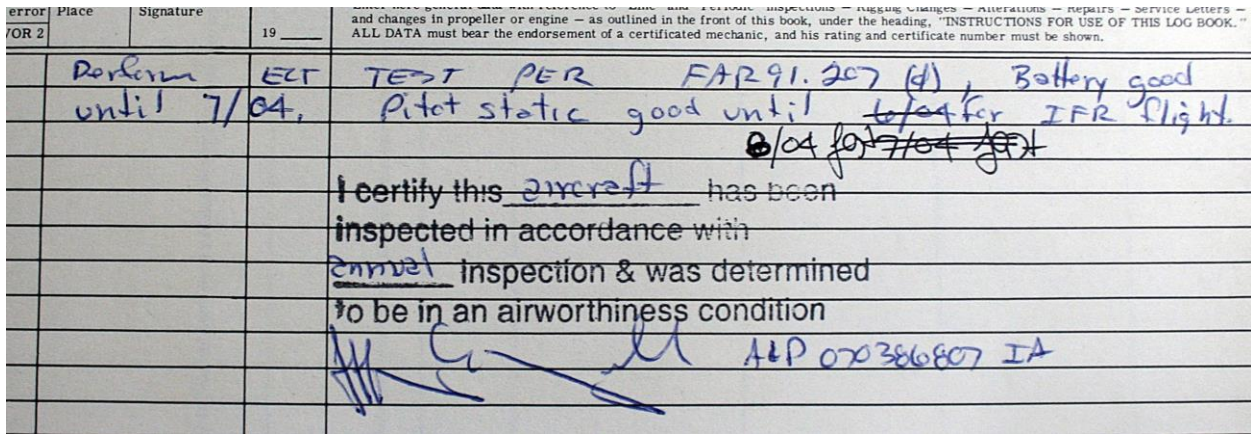 error Place Signature Enter here general data with reference to Line and Periodic Inspections — Rigging Changes — Alterations — Repairs — Service Letters —
and changes in propeller or engine — as outlined in the front of this book, under the heading, "INSTRUCTIONS FOR USE OF THIS LOG BOOK."
VOR 2 19 ALL DATA must bear the endorsement of a certificated mechanic, and his rating and certificate number must be shown.
Perform ELT TEST PER FAR 91.207 (d), Battery good
until 7/04. Pitot static good until 6/04 for IFR flight.
8/04 for 7/04 for
I certify this aircraft has been
inspected in accordance with
annual Inspection & was determined
to be in an airworthiness condition
A&P 070386807 IA